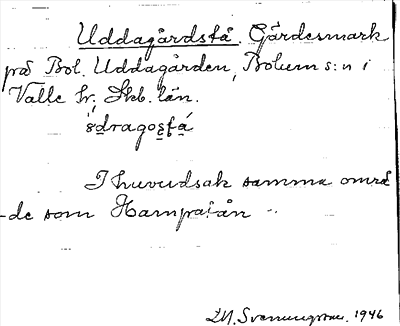 Uddagårdsfå. Gärdesmark
på Bol. Uddagården, Bolum s:n i
Valle hr, Skb. län.
ɯ̀dragosfá
I huvudsak samma områ
-de som Hampatån
D.N. Svenungsson. 1946